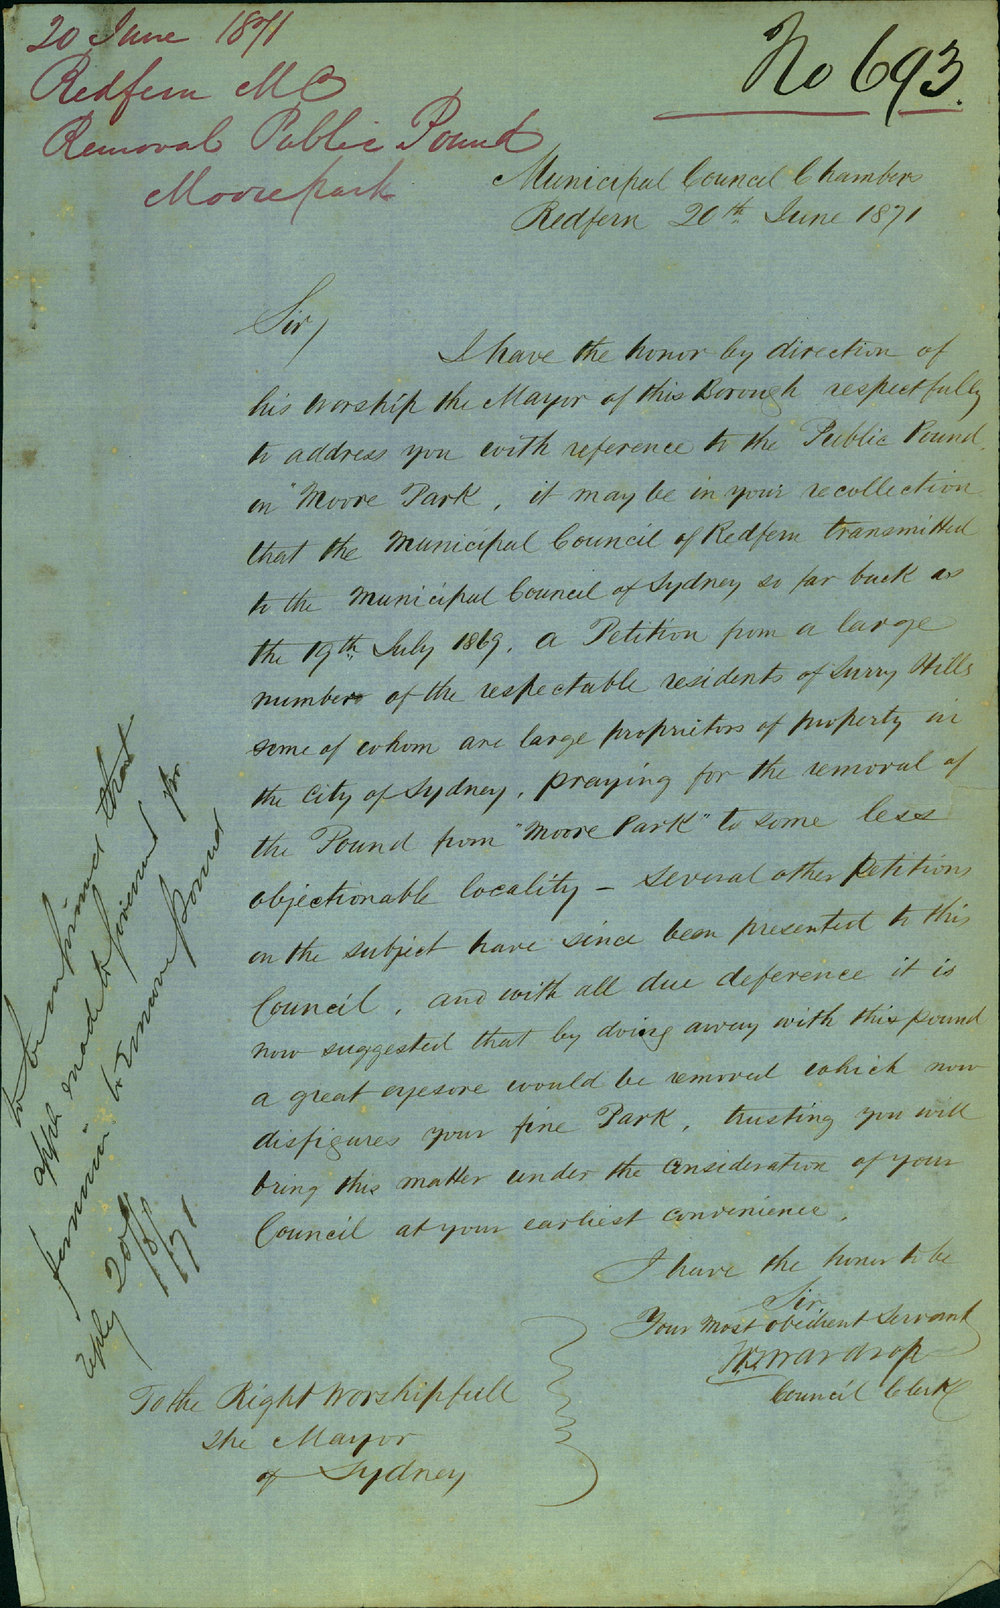 20 June 1871
Redfern MC
Removal Public Pound
Moore park
No 693.
Municipal Council Chambers
Redfern 20th June 1871
Sir,
I have the honor by direction of
his worship the Mayor of this Borough respectfully
to address you with reference to the Public Pound
in "Moore Park, it may be in your recollection
that the Municipal Council of Redfern transmitted
to the Municipal Council of Sydney so far back as
the 19th July 1869, a Petition from a large
number of the respectable residents of Surry Hills
some of whom are large proprietors of property in
the City of Sydney, praying for the removal of
the Pound from "Moore Park" to some less
objectionable locality – several other Petitions
on the subject have since been presented to this
Council, and with all due deference it is
now suggested that by doing away with this pound
a great eyesore would be removed which now
disfigures your fine Park, trusting you will
bring this matter under the consideration of your
Council at your earliest convenience.
I have the honor to be
Sir
Your most obedient Servant
Wardrop
Council Clerk
To the Right Worshipfull
The Mayor
of Sydney
to be informed that
appln made to Governmt for
permissn to remove pound
reply 20/6/71